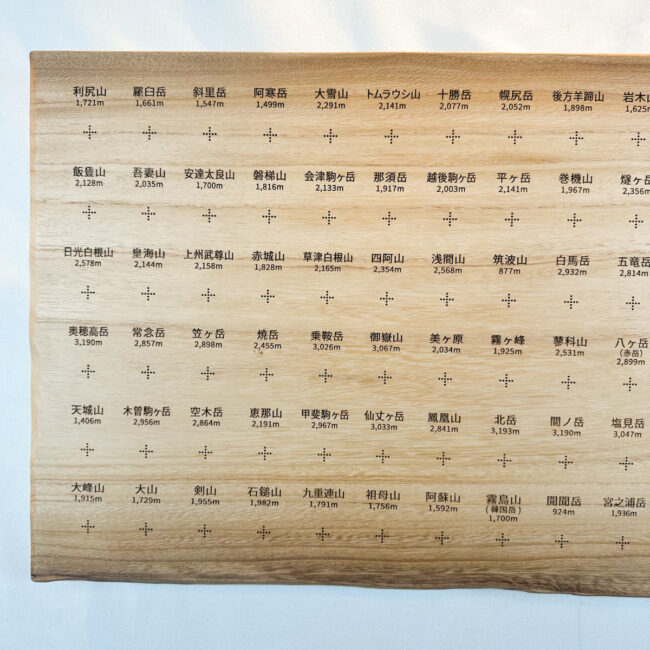 利尻山 羅臼岳 斜里岳 阿寒岳 大雪山 トムラウシ山 十勝岳 幌尻岳 後方羊蹄山 岩木山
1,721m 1,661m 1,547m 1,499m 2,291m 2,141m 2,077m 2,052m 1,898m 1,625m
飯豊山 吾妻山 安達太良山 磐梯山 会津駒ヶ岳 那須岳 越後駒ヶ岳 平ヶ岳 巻機山 燧ヶ岳
2,128m 2,035m 1,700m 1,816m 2,133m 1,917m 2,003m 2,141m 1,967m 2,356m
日光白根山 皇海山 上州武尊山 赤城山 草津白根山 四阿山 浅間山 筑波山 白馬岳 五竜岳
2,578m 2,144m 2,158m 1,828m 2,165m 2,354m 2,568m 877m 2,932m 2,814m
奥穂高岳 常念岳 笠ヶ岳 焼岳 乗鞍岳 御嶽山 美ヶ原 霧ヶ峰 蓼科山 八ヶ岳
(赤岳)
3,190m 2,857m 2,898m 2,455m 3,026m 3,067m 2,034m 1,925m 2,531m 2,899m
天城山 木曽駒ヶ岳 空木岳 恵那山 甲斐駒ヶ岳 仙丈ヶ岳 鳳凰山 北岳 間ノ岳 塩見岳
1,406m 2,956m 2,864m 2,191m 2,967m 3,033m 2,841m 3,193m 3,190m 3,047m
大峰山 大山 剣山 石鎚山 九重連山 祖母山 阿蘇山 霧島山 開聞岳 宮之浦岳
(韓国岳)
1,915m 1,729m 1,955m 1,982m 1,791m 1,756m 1,592m 1,700m 924m 1,936m